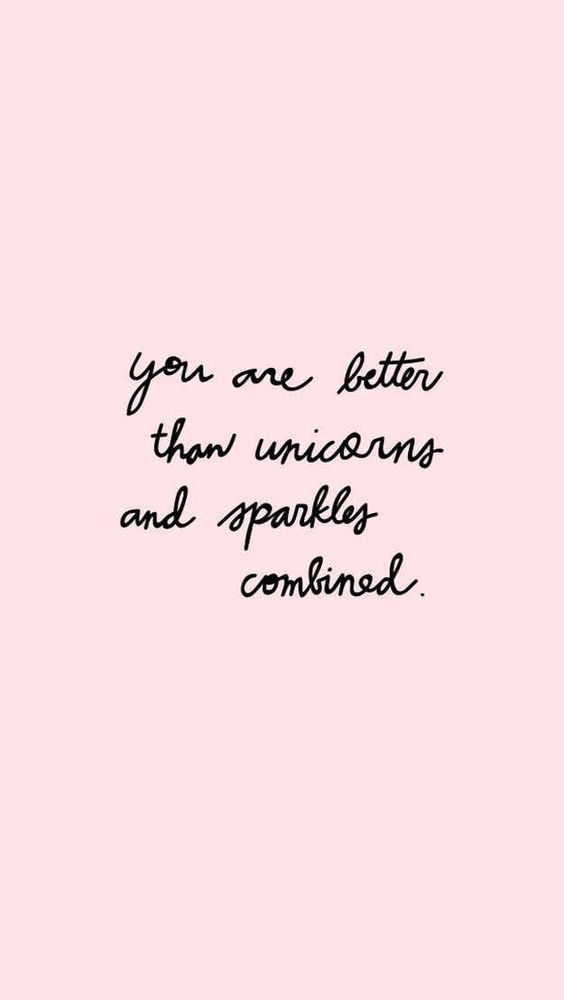 you are better
than unicorns
and sparkles
combined.